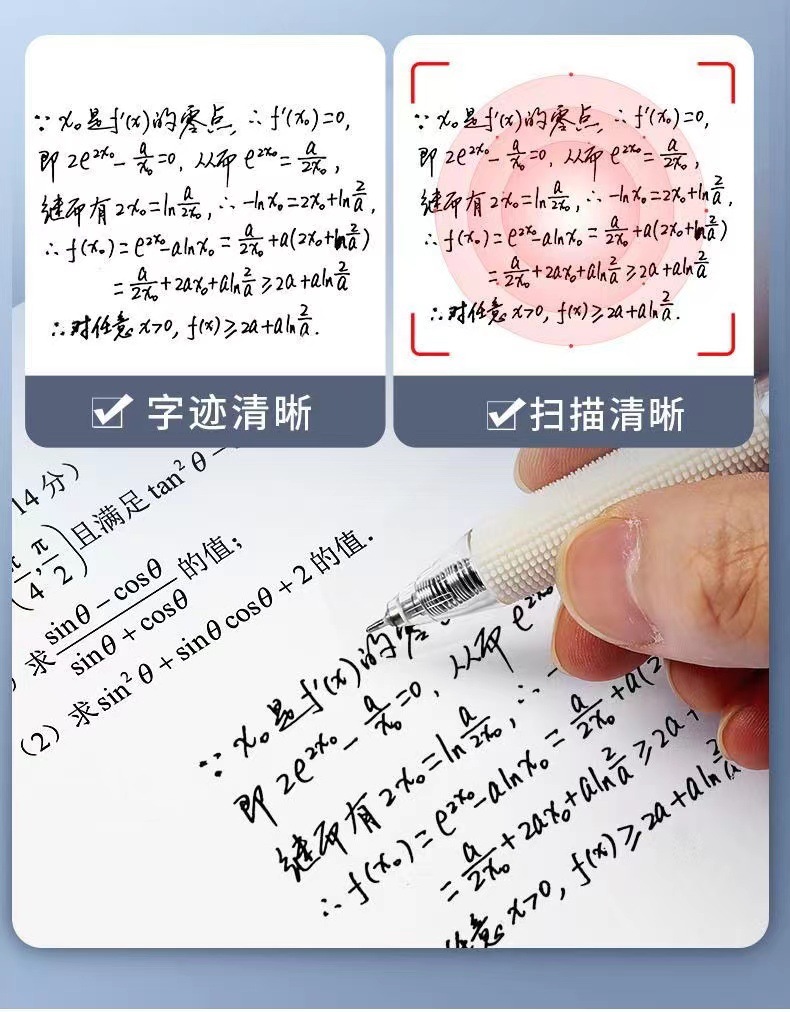 ∵ x₀是f'(x)的零点, ∴ f'(x₀)=0,
即 2e^{2x₀} - a/x₀ =0, 从而 e^{2x₀} = a/2x₀,
继而有 2x₀=ln a/2x₀, ∴ -lnx₀=2x₀+ln 2/a,
∴ f(x₀)=e^{2x₀}-alnx₀ = a/2x₀ +a(2x₀+ln 2/a)
= a/2x₀ +2ax₀+aln 2/a ≥2a+aln 2/a
∴对任意x>0, f(x)≥2a+aln 2/a.
字迹清晰
∵ x₀是f'(x)的零点, ∴ f'(x₀)=0,
即 2e^{2x₀} - a/x₀ =0, 从而 e^{2x₀} = a/2x₀,
继而有 2x₀=ln a/2x₀, ∴ -lnx₀=2x₀+ln 2/a,
∴ f(x₀)=e^{2x₀}-alnx₀ = a/2x₀ +a(2x₀+ln 2/a)
= a/2x₀ +2ax₀+aln 2/a ≥2a+aln 2/a
∴对任意x>0, f(x)≥2a+aln 2/a.
扫描清晰
14分)
π/4, π/2)且满足tan²θ-
求 (sinθ-cosθ)/(sinθ+cosθ) 的值;
(2) 求sin²θ+sinθcosθ+2的值.
∵ x₀是f'(x)的零
即 2e^{2x₀} - a/x₀ =0, 从而 e^{2x₀}
继而有 2x₀=ln a/2x₀, ∴ -
∴ f(x₀)=e^{2x₀}-alnx₀ = a/2x₀ +a(2
= a/2x₀ +2ax₀+aln 2/a ≥2a+
任意x>0, f(x)≥2a+aln 2/a